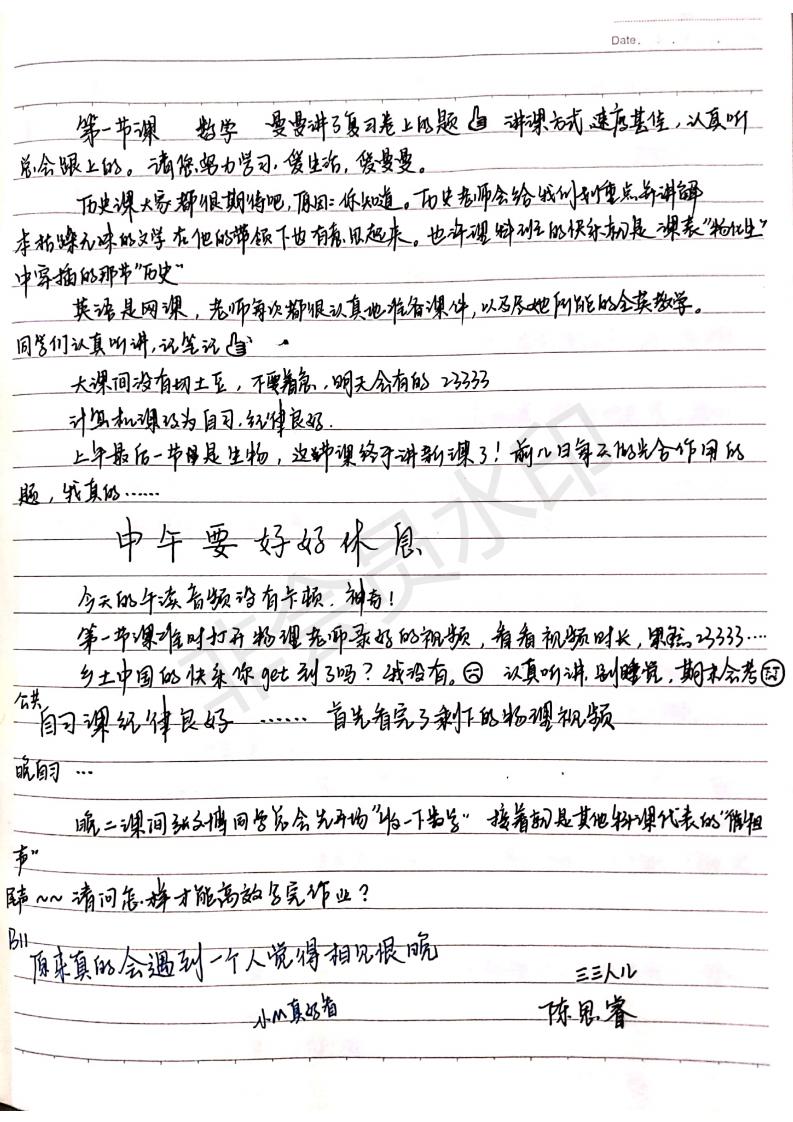 Date.
第一节课 数学 曼曼讲了复习卷上的题 讲课方式,速度甚佳,认真听
总会跟上的。请您努力学习,爱生活,爱曼曼。
历史课大家都很期待吧,原因:你知道。历史老师会给我们划重点并讲解
本枯燥无味的文学在他的带领下也有意思起来。也许理科班的快乐就是课表"物化生"
中穿插的那节"历史"
英语是网课,老师每次都很认真地准备课件,以及尽她所能的全英教学。
同学们认真听讲,记笔记
大课间没有切土豆,不要着急,明天会有的 23333
计算机课改为自习.纪律良好.
上午最后一节是生物,这节课终于讲新课了!前几日每天的光合作用的
题,我真的……
中午要好好休息
今天的午读音频没有卡顿,神奇!
第一节课准时打开物理老师录好的视频,看看视频时长,果然23333····
乡土中国的快乐你get到了吗?我没有。 认真听讲.别睡觉,期末会考
公共
自习课纪律良好 …… 首先看完了剩下的物理视频
晚自习 …
晚二课间张文博同学总会先开场"收一下数学" 接着就是其他科课代表的"催租
声"
尾声~~请问怎样才能高效写完作业?
B11
原来真的会遇到一个人觉得相见恨晚
三三人儿
小M真好看
陈思睿
非会员水印